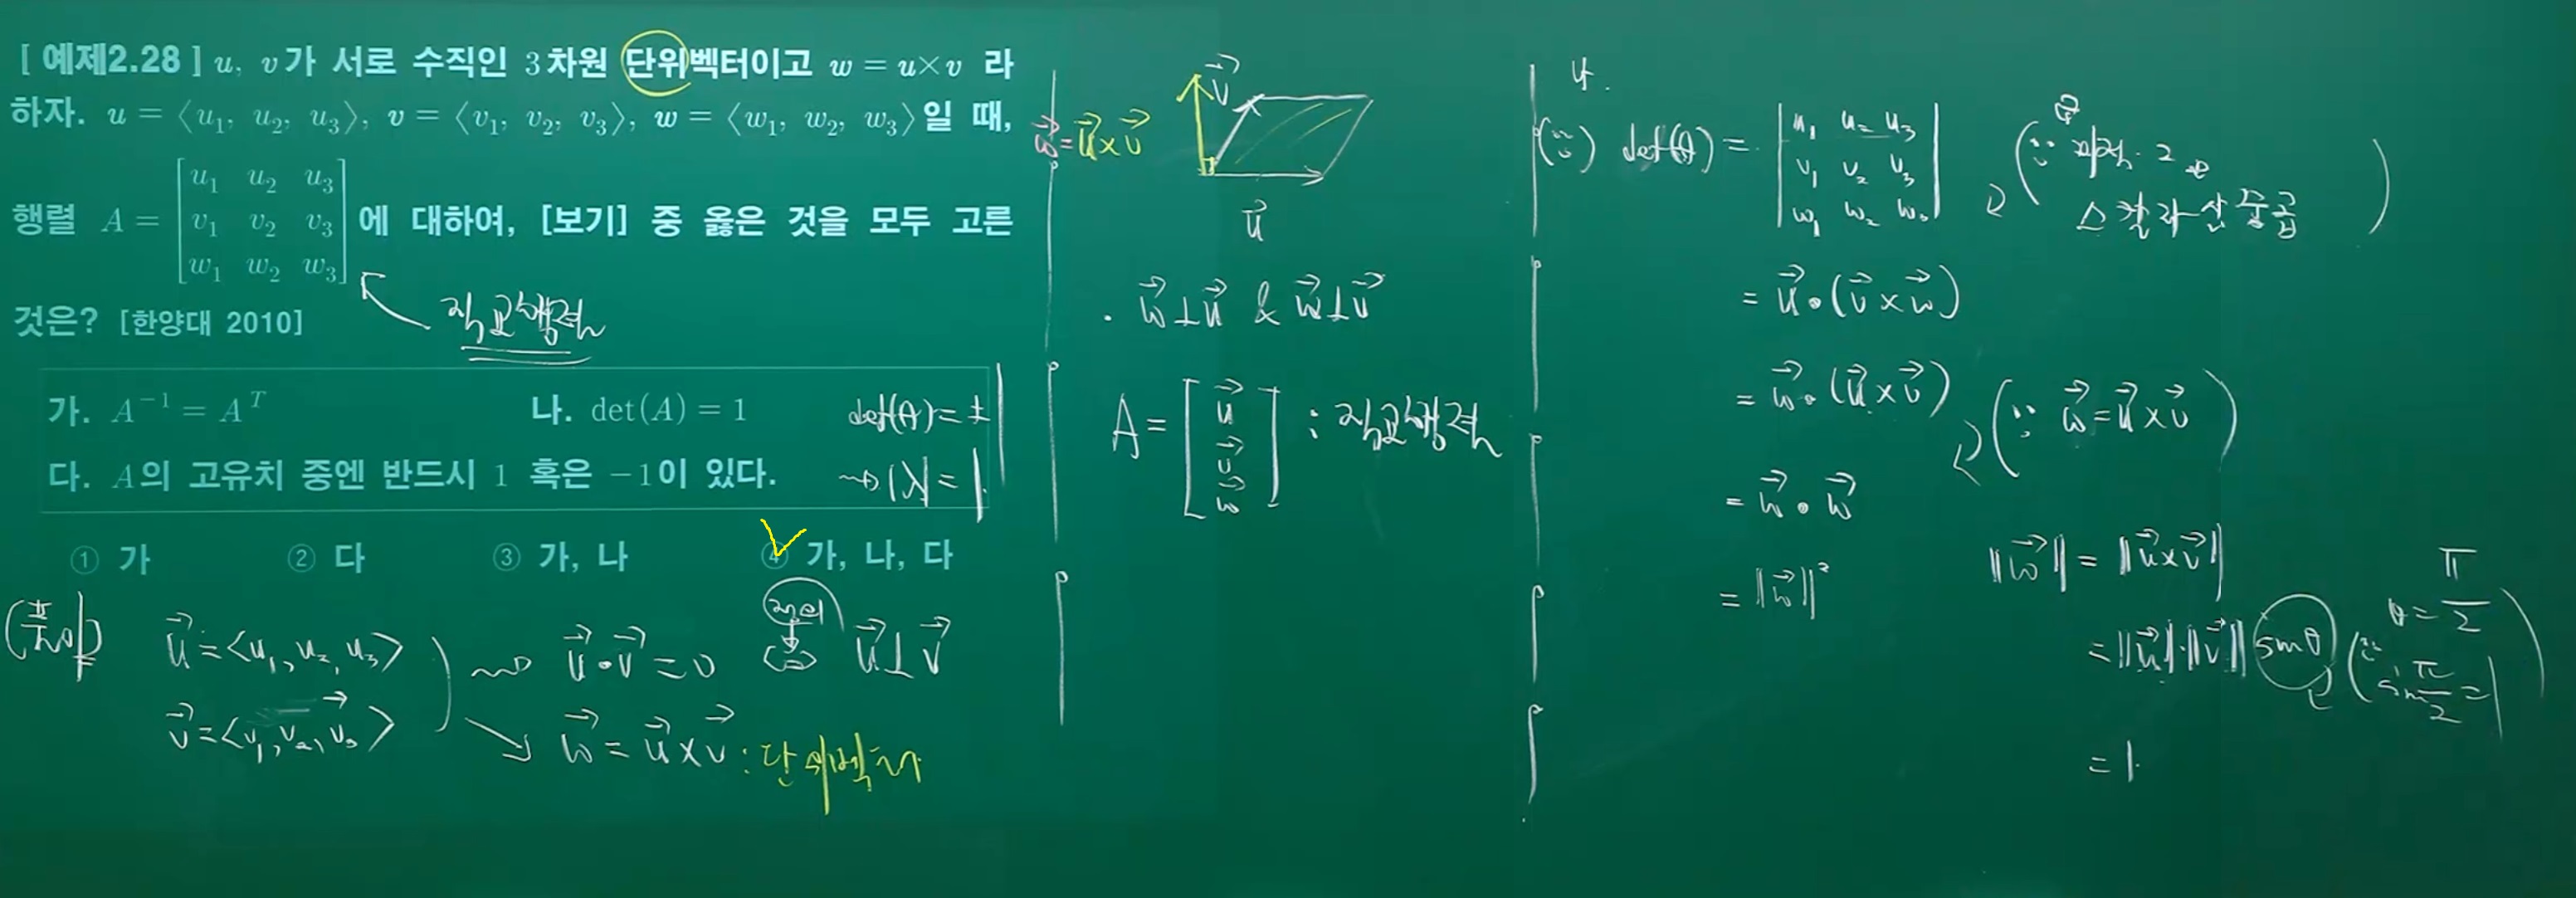 [ 예제2.28 ] u, v가 서로 수직인 3차원 단위벡터이고 w = u×v 라
하자. u = ⟨u₁, u₂, u₃⟩, v = ⟨v₁, v₂, v₃⟩, w = ⟨w₁, w₂, w₃⟩일 때,
행렬 A = [u₁ u₂ u₃
v₁ v₂ v₃
w₁ w₂ w₃] 에 대하여, [보기] 중 옳은 것을 모두 고른
것은? [한양대 2010]
직교행렬
가. A⁻¹ = Aᵀ 나. det(A) = 1
det(A) = ±
다. A의 고유치 중엔 반드시 1 혹은 −1이 있다.
|λ| = 1.
① 가 ② 다 ③ 가, 나 ④ 가, 나, 다
(풀이)
u⃗ = <u₁, u₂, u₃>
v⃗ = <v₁, v₂, v₃>
u⃗ • v⃗ = 0
정의
⇔ u⃗ ⊥ v⃗
w⃗ = u⃗ × v⃗ : 단위벡터
w⃗ = u⃗ × v⃗
v⃗
u⃗
· w⃗ ⊥ u⃗ & w⃗ ⊥ v⃗
A = [u⃗
v⃗
w⃗] : 직교행렬
나.
(∵) det(A) = |u₁ u₂ u₃
v₁ v₂ v₃
w₁ w₂ w₃|
스칼라 삼중곱
= u⃗ • (v⃗ × w⃗)
= w⃗ • (u⃗ × v⃗)
(∵ w⃗ = u⃗ × v⃗)
= w⃗ • w⃗
= ‖w⃗‖²
‖w⃗‖ = ‖u⃗ × v⃗‖
= ‖u⃗‖·‖v⃗‖ sinθ
(∵ θ = π/2
sin π/2 = 1)
= 1.